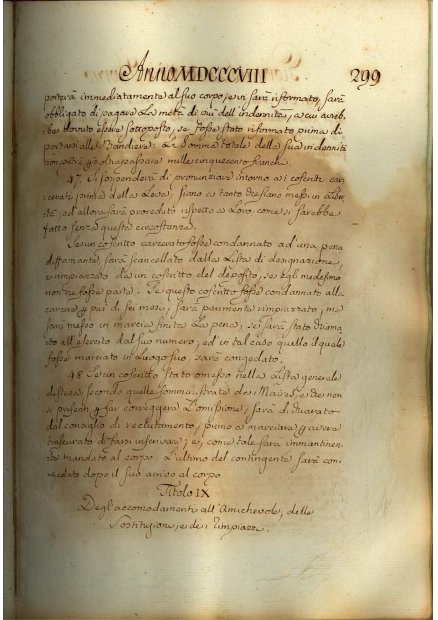 Anno MDCCCVIII 299
porterà immediatamente al suo corpo, e vi sarà riformato, sarà
obbligato di pagare la metà di più dell'indennità, a cui avreb-
be dovuto essere sottoposto, se fosse stato riformato prima di
portarsi alle Bandiere: La Somma totale della sua indennità
non potrà poi oltrepassare mille cinquecento franchi.
47. Si sospenderà di pronunziare intorno a i coscritti car-
cerati prima della Leva, siano a tanto che siano messi in Liber-
tà, ed allora sarà proceduto rispetto a Loro, come si sarebbe
fatto senza questa circostanza.
Se un coscritto carcerato fosse condannato ad'una pena
diffamante, sarà scancellato dalla Lista di designazione,
e rimpiazzato da un coscritto del deposito, se egli medesimo
non ne fosse parte. Se questo coscritto fosse condannato alla
carcere p più di sei mesi, sarà parimente rimpiazzato, ma
sarà messo in marcia finita La pena, se sarà stato chiama-
to all'esercito dal suo numero, ed in tal caso quello il quale
fosse marciato in Luogo suo, sarà congedato.
48 Se un coscritto stato omesso nella Lista generale
distesa secondo quelle somministrate dai Maires, e che non
si presenti p far correggere L'omissione, sarà dichiarato
dal consiglio di reclutamento, primo a marciare p avere
trascurato di farsi inscrivere; e, come tale sarà immantinen-
te mandato al corpo. L'ultimo del contingente sarà con-
gedato dopo il suo arrivo al corpo.
Titolo IX
Degl'accomodamenti all'Amichevole; delle
Sostituzioni, e de i Rimpiazzi.